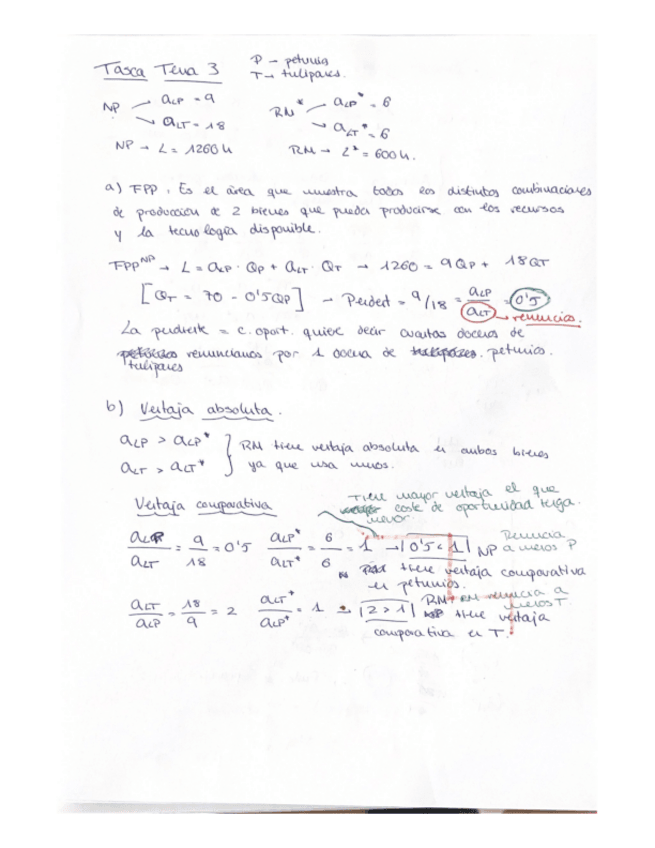 Tasca Tema 3
P → petunia
T → tulipanes.
NP
aLP = 9
aLT = 18
RM*
aLP* = 6
aLT* = 6
NP → L = 1260 h
RM → L* = 600 h.
a) FPP. Es el área que muestra todas las distintas combinaciones
de producción de 2 bienes que pueden producirse con los recursos
y la tecnología disponible.
FPP^NP → L = aLP · QP + aLT · QT → 1260 = 9QP + 18QT
[QT = 70 - 0'5QP] → Pendent = 9/18 = aLP/aLT = 0'5
renuncias.
La pendiente = c. oport. quiere decir cuantas docenas de
renunciamos por 1 docena de petunias.
tulipanes
b) Ventaja absoluta.
aLP > aLP*
aLT > aLT*
RM tiene ventaja absoluta en ambos bienes
ya que usa menos.
Ventaja comparativa
Tiene mayor ventaja el que
coste de oportunidad tenga.
menor
aLP/aLT = 9/18 = 0'5 aLP*/aLT* = 6/6 = 1 → |0'5 < 1|
Renuncia
NP a menos P
tiene ventaja comparativa
en petunias.
aLT/aLP = 18/9 = 2 aLT*/aLP* = 1 → |2 > 1|
RM RM renuncia a
menos T.
tiene ventaja
comparativa en T.